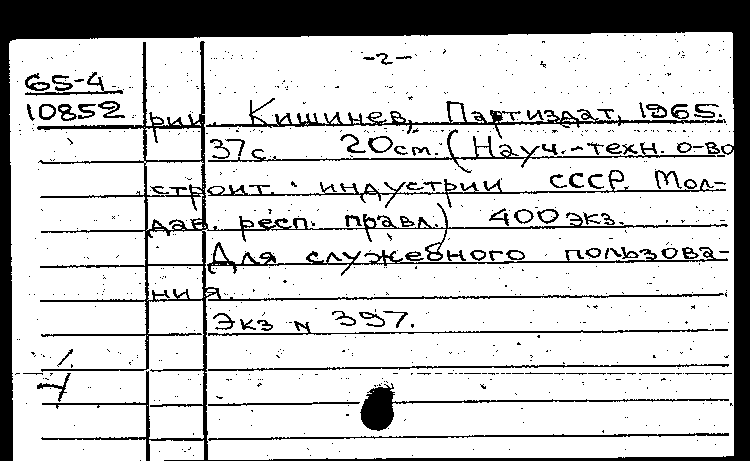 -2-
65-4
10852
рии. Кишинев, Партиздат, 1965.
37с. 20см. (Науч.-техн. о-во
строит. индустрии СССР. Мол-
дав. респ. правл.) 400 экз.
Для служебного пользова-
ния.
Экз N 397.